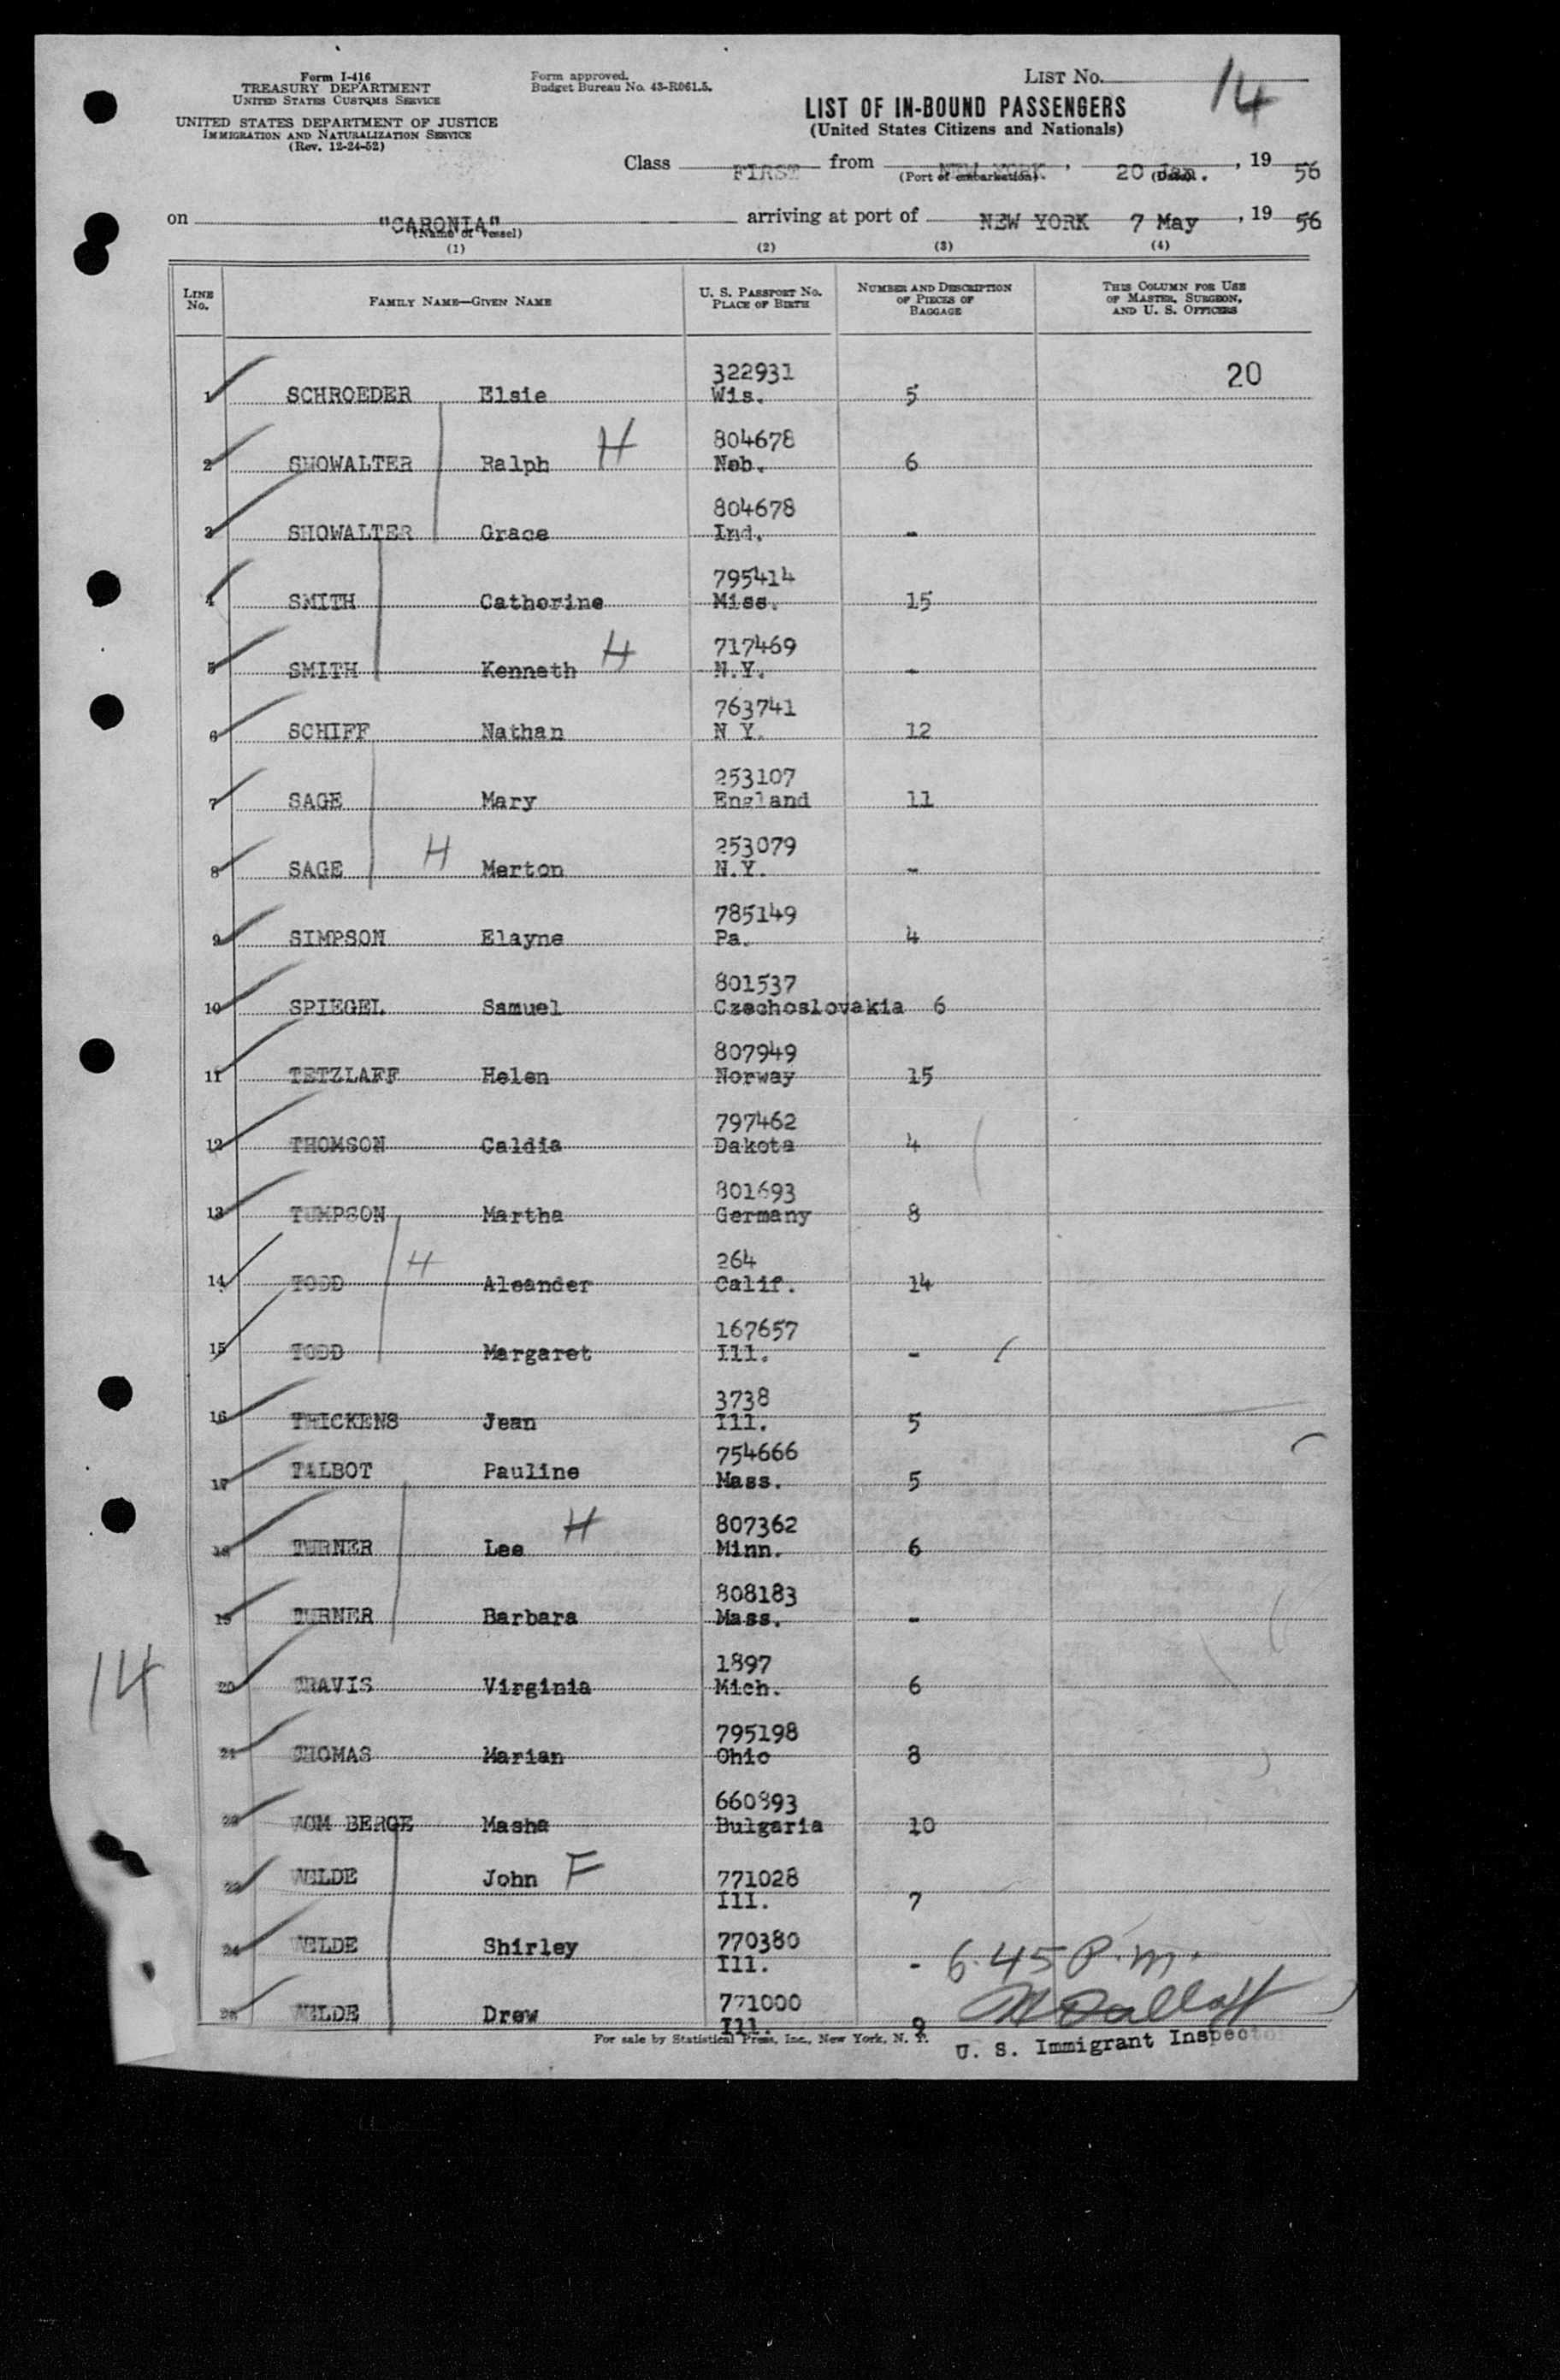 Form I-416
TREASURY DEPARTMENT
UNITED STATES CUSTOMS SERVICE
UNITED STATES DEPARTMENT OF JUSTICE
IMMIGRATION AND NATURALIZATION SERVICE
(Rev. 12-24-52)
Form approved.
Budget Bureau No. 43-R061.5.
LIST No. 14
LIST OF IN-BOUND PASSENGERS
(United States Citizens and Nationals)
Class FIRST from NEW YORK, 20 Jan., 19 56
(Port of embarkation) (Date)
on "CARONIA" arriving at port of NEW YORK 7 May, 19 56
(Name of vessel)
(1) (2) (3) (4)
LINE No. FAMILY NAME—GIVEN NAME U. S. PASSPORT No. PLACE OF BIRTH NUMBER AND DESCRIPTION OF PIECES OF BAGGAGE THIS COLUMN FOR USE OF MASTER, SURGEON, AND U. S. OFFICERS
322931 20
1 SCHROEDER Elsie Wis. 5
804678
2 SHOWALTER Ralph H Neb. 6
804678
3 SHOWALTER Grace Ind. -
795414
4 SMITH Catherine Miss. 15
717469
5 SMITH Kenneth H N.Y. -
763741
6 SCHIFF Nathan N Y. 12
253107
7 SAGE Mary England 11
253079
8 SAGE H Merton N.Y. -
785149
9 SIMPSON Elayne Pa. 4
801537
10 SPIEGEL Samuel Czechoslovakia 6
807949
11 TETZLAFF Helen Norway 15
797462
12 THOMSON Caldia Dakota 4
801693
13 TUMPSON Martha Germany 8
264
14 TODD H Aleander Calif. 14
167657
15 TODD Margaret Ill. -
3738
16 THICKENS Jean Ill. 5
754666
17 TALBOT Pauline Mass. 5
807362
18 TURNER Lee H Minn. 6
808183
19 TURNER Barbara Mass. -
14
1897
20 TRAVIS Virginia Mich. 6
795198
21 THOMAS Marian Ohio 8
660893
22 VOM BERGE Masha Bulgaria 10
23 WELDE John F 771028
Ill. 7
24 WELDE Shirley 770380
Ill. - 6.45 P.m.
771000
25 WELDE Drew Ill. 9
For sale by Statistical Press, Inc., New York, N. Y.
U. S. Immigrant Inspector